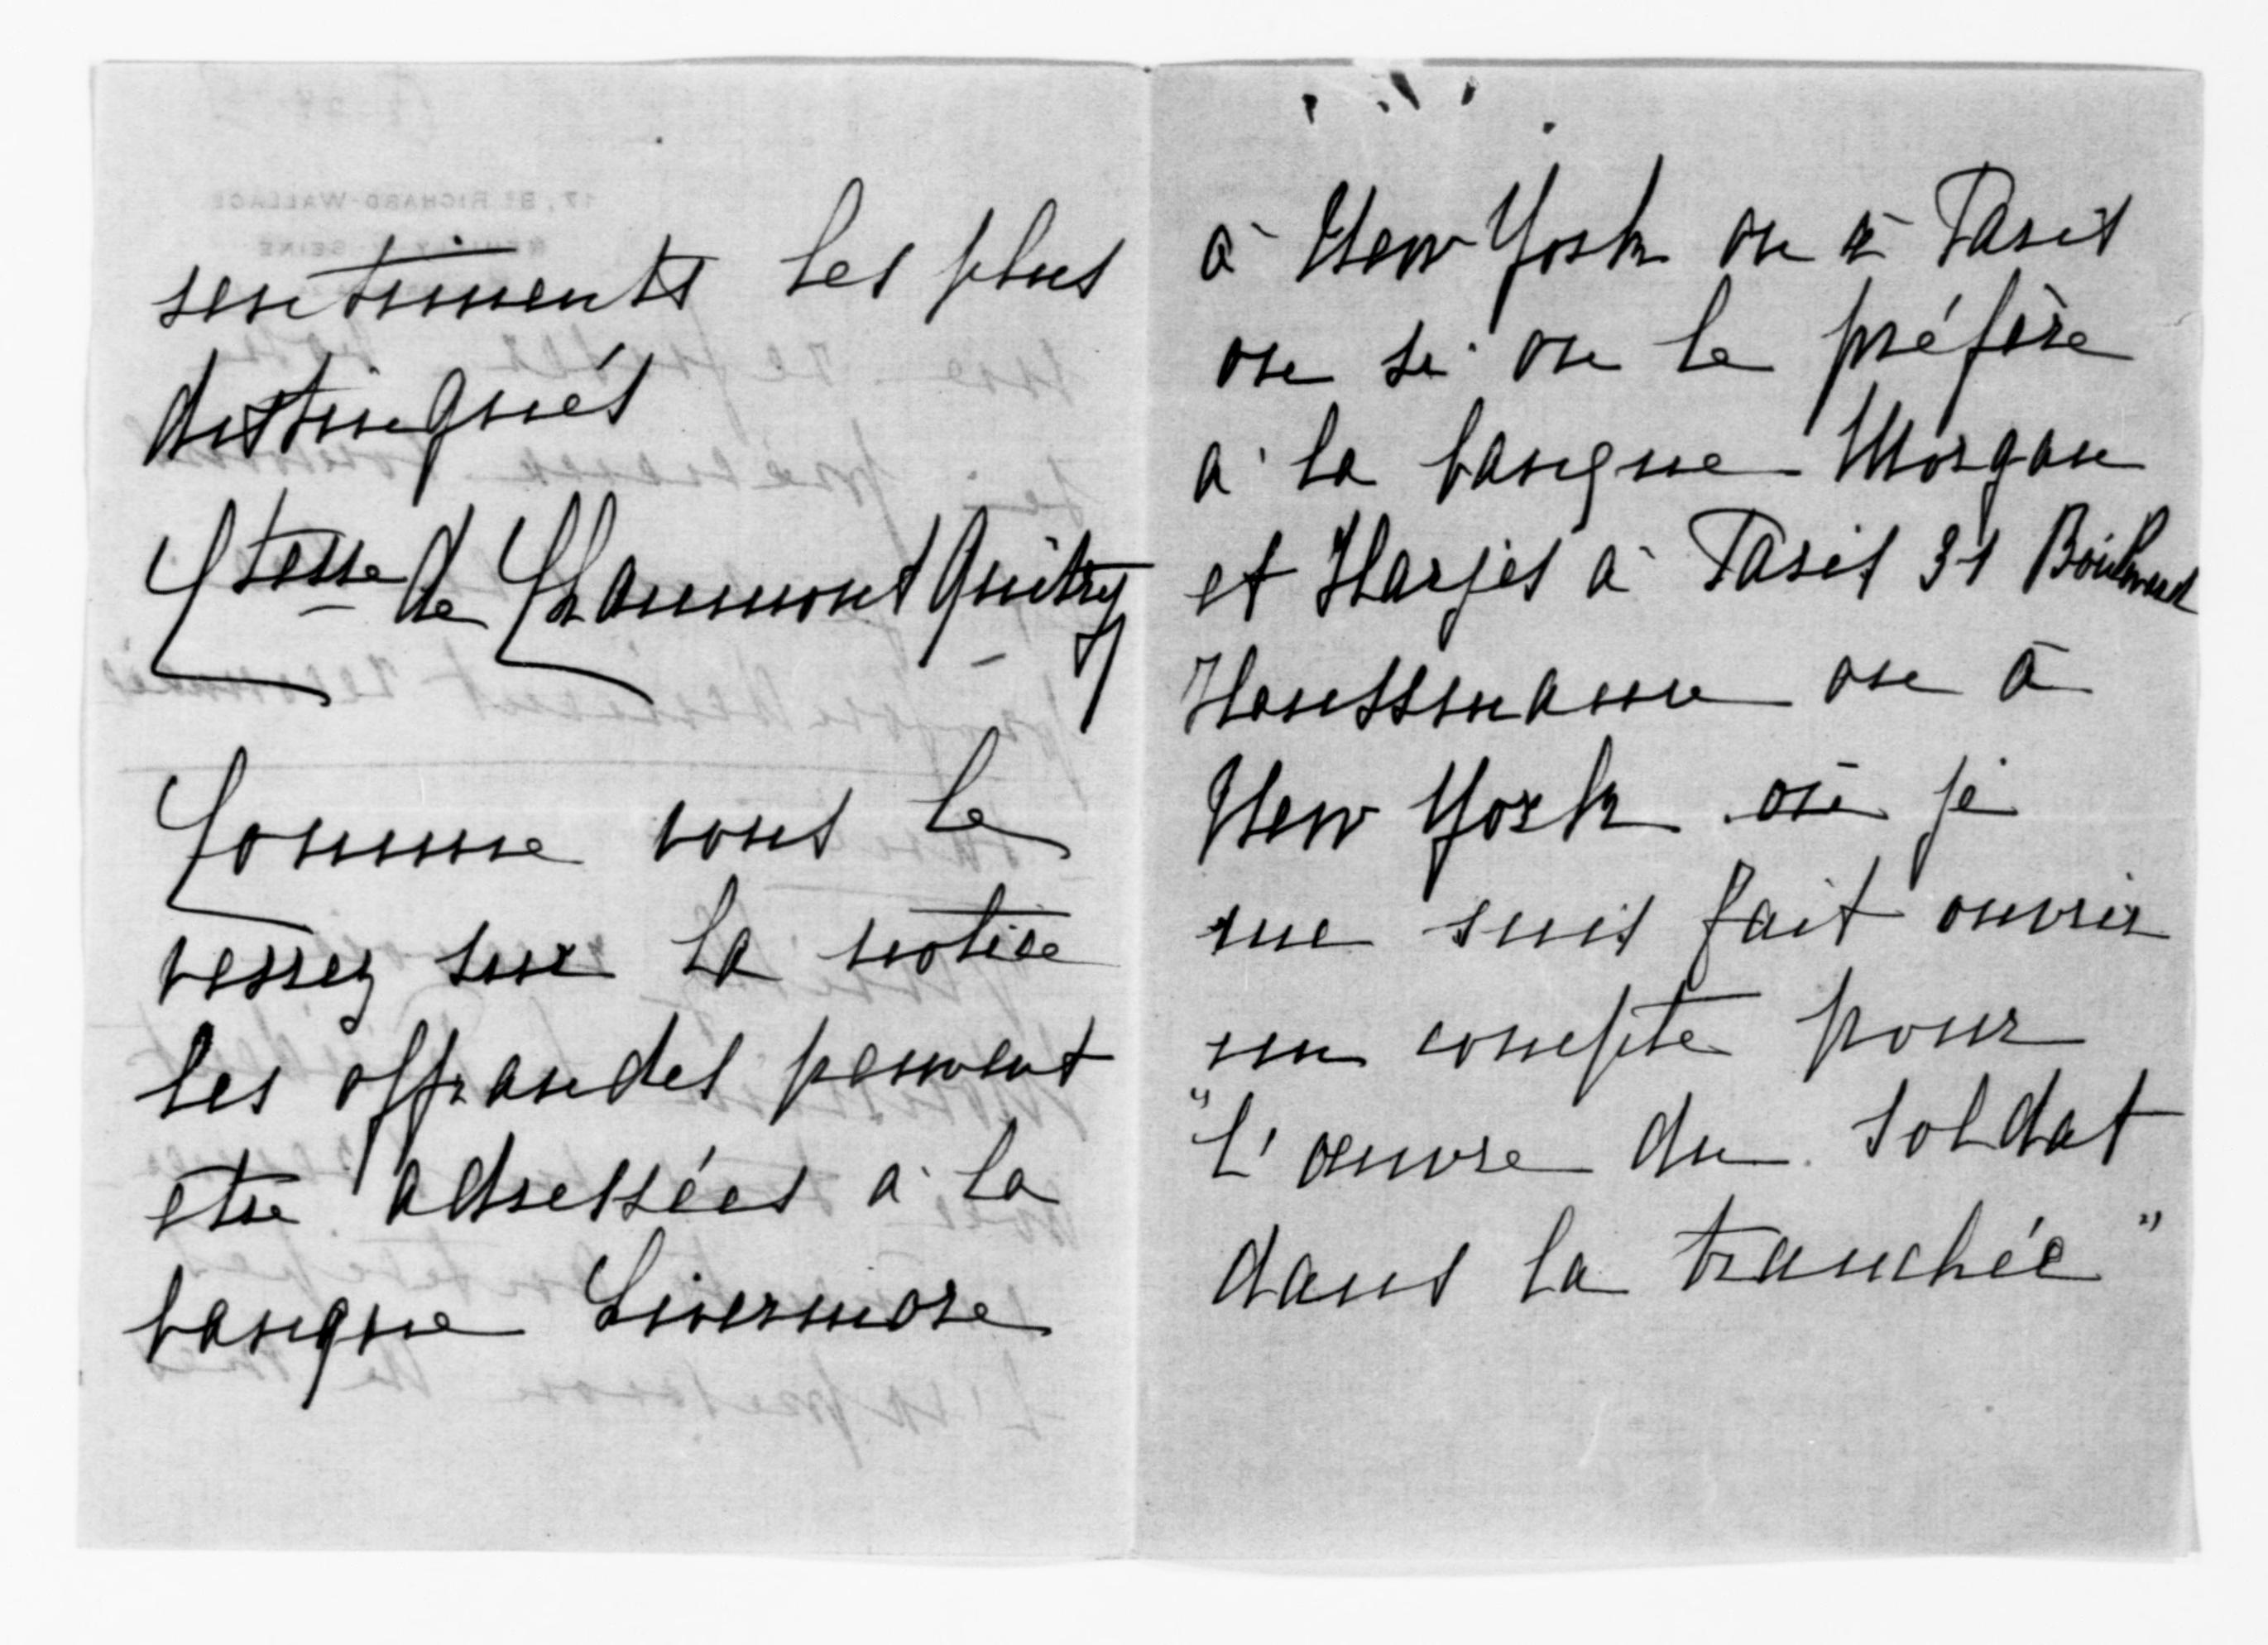 sentiments les plus
distingués
Ctesse de Chaumont Quitry
Comme vous le
verrez sur la notice
les offrandes peuvent
etre adressées a la
banque Livermore
à New York ou à Paris
ou si on le préfère
a la banque Morgan
et Harjes à Paris 31 Boulevard
Haussmann ou à
New York où je
me suis fait ouvrir
un compte pour
"l'œuvre du soldat
dans la tranchée"
17, BD RICHARD-WALLACE